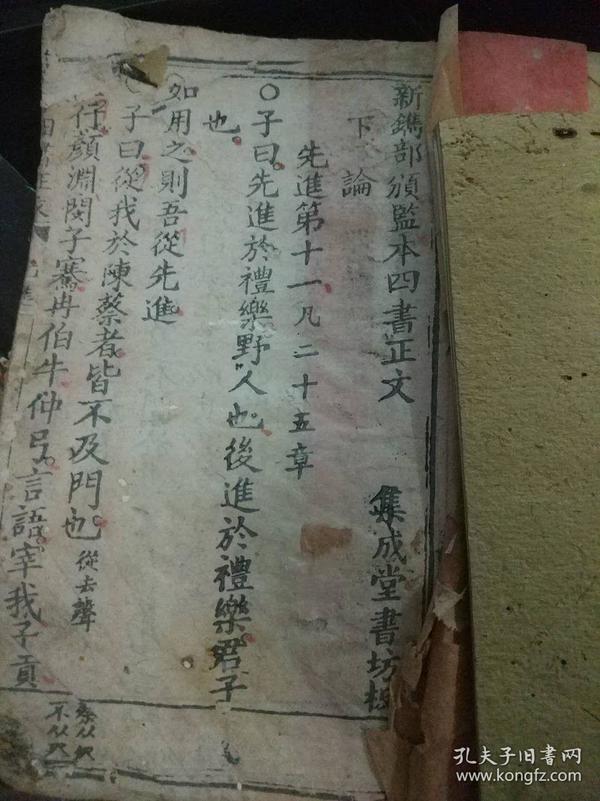 新鐫部頒監本四書正文　集成堂書坊梓
下論
先進第十一凡二十五章
○子曰先進於禮樂野人也後進於禮樂君子
也
如用之則吾從先進
子曰從我於陳蔡者皆不及門也從去聲
行顏淵閔子騫冉伯牛仲弓言語宰我子貢
孔夫子旧书网
www.kongfz.com